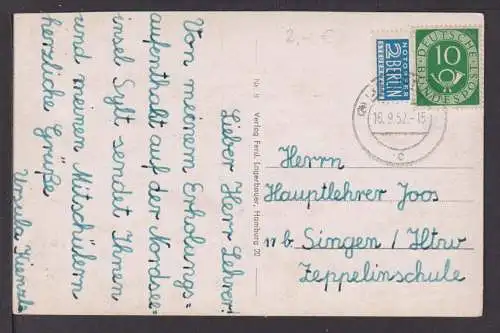 2,- €
Lieber Herr Lehrer!
Von meinem Erholungs-
aufenthalt auf der Nordsee-
insel Sylt sendet Ihnen
und meinen Mitschülern
herzliche Grüße
Ursula
Nr. 9 Verlag Ferd. Lagerbauer, Hamburg 20
NOTOPFER
2 BERLIN
STEUERMARKE
DEUTSCHE
BUNDESPOST
10
16.9.52.-15
c
Herrn
Hauptlehrer Joos
17b Singen / Htw
Zeppelinschule